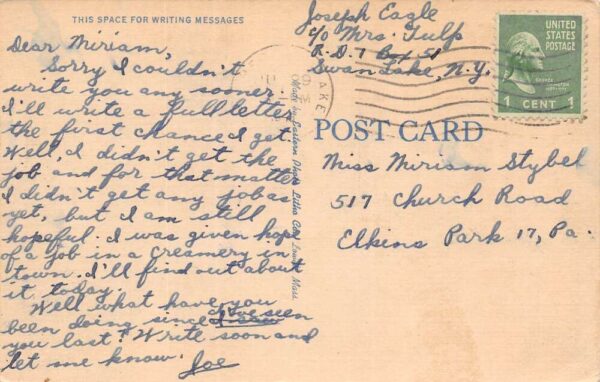 THIS SPACE FOR WRITING MESSAGES
Dear Miriam,
Sorry I couldn't
write you any sooner.
I'll write a full letter
the first chance I get.
Well, I didn't get the
job and for that matter
I didn't get any job as
yet, but I am still
hopeful. I was given hope
of a job in a creamery in
town. I'll find out about
it today.
Well what have you
been doing since I saw I've seen
you last? Write soon and
let me know. Joe
Joseph Eagle
c/o Mrs. Tulp
R.D.1 Box 51
Swan Lake, N.Y.
LAKE
UNITED
STATES
POSTAGE
GEORGE
WASHINGTON
1 CENT 1
POST CARD
Miss Miriam Stybel
517 Church Road
Elkins Park 17, Pa.
Made by Eastern Photo Litho Co.
Mass.